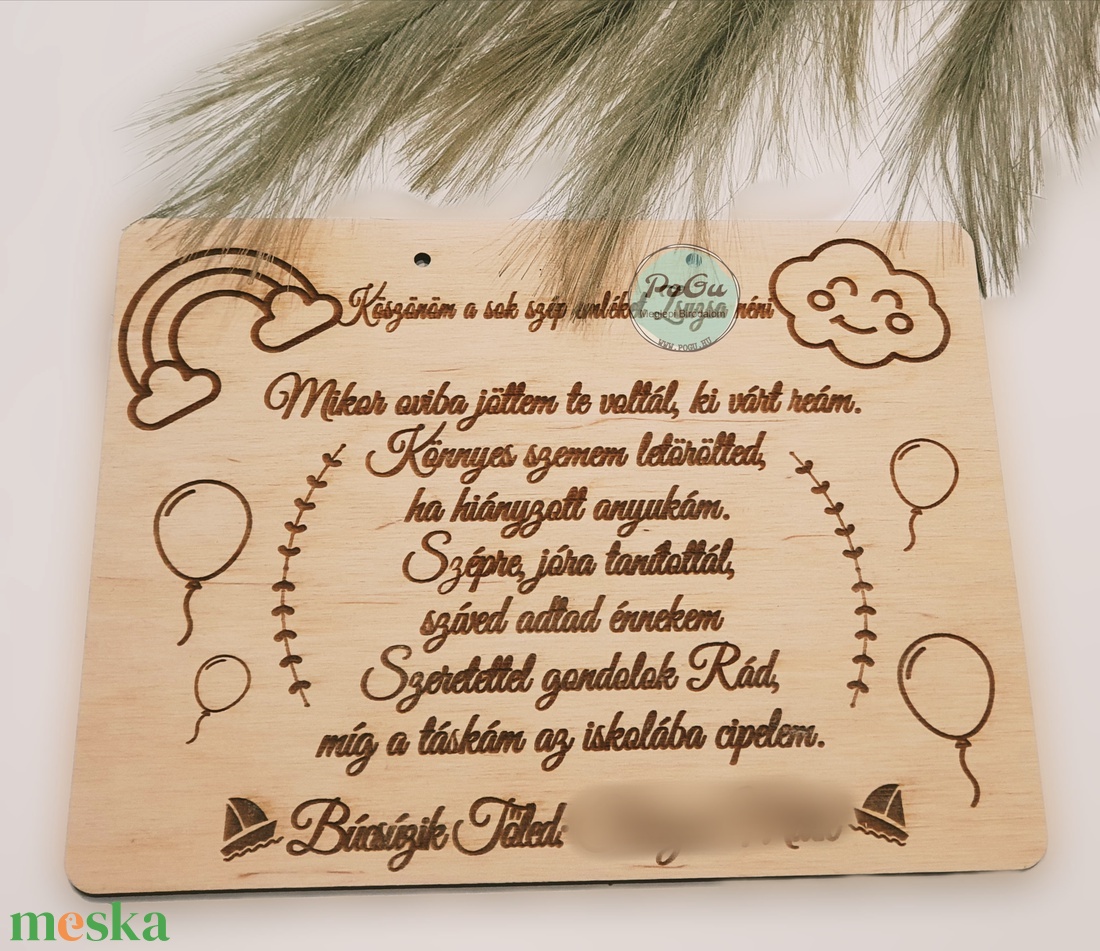 Köszönöm a sok szép emléket Zsuzsa néni
PoGu
Meglepi Birodalom
WWW.POGU.HU
Mikor oviba jöttem te voltál, ki várt reám.
Könnyes szemem letörölted,
ha hiányzott anyukám.
Szépre, jóra tanítottál,
szíved adtad énnekem
Szeretettel gondolok Rád,
míg a táskám az iskolába cipelem.
Búcsúzik Tőled:
meska